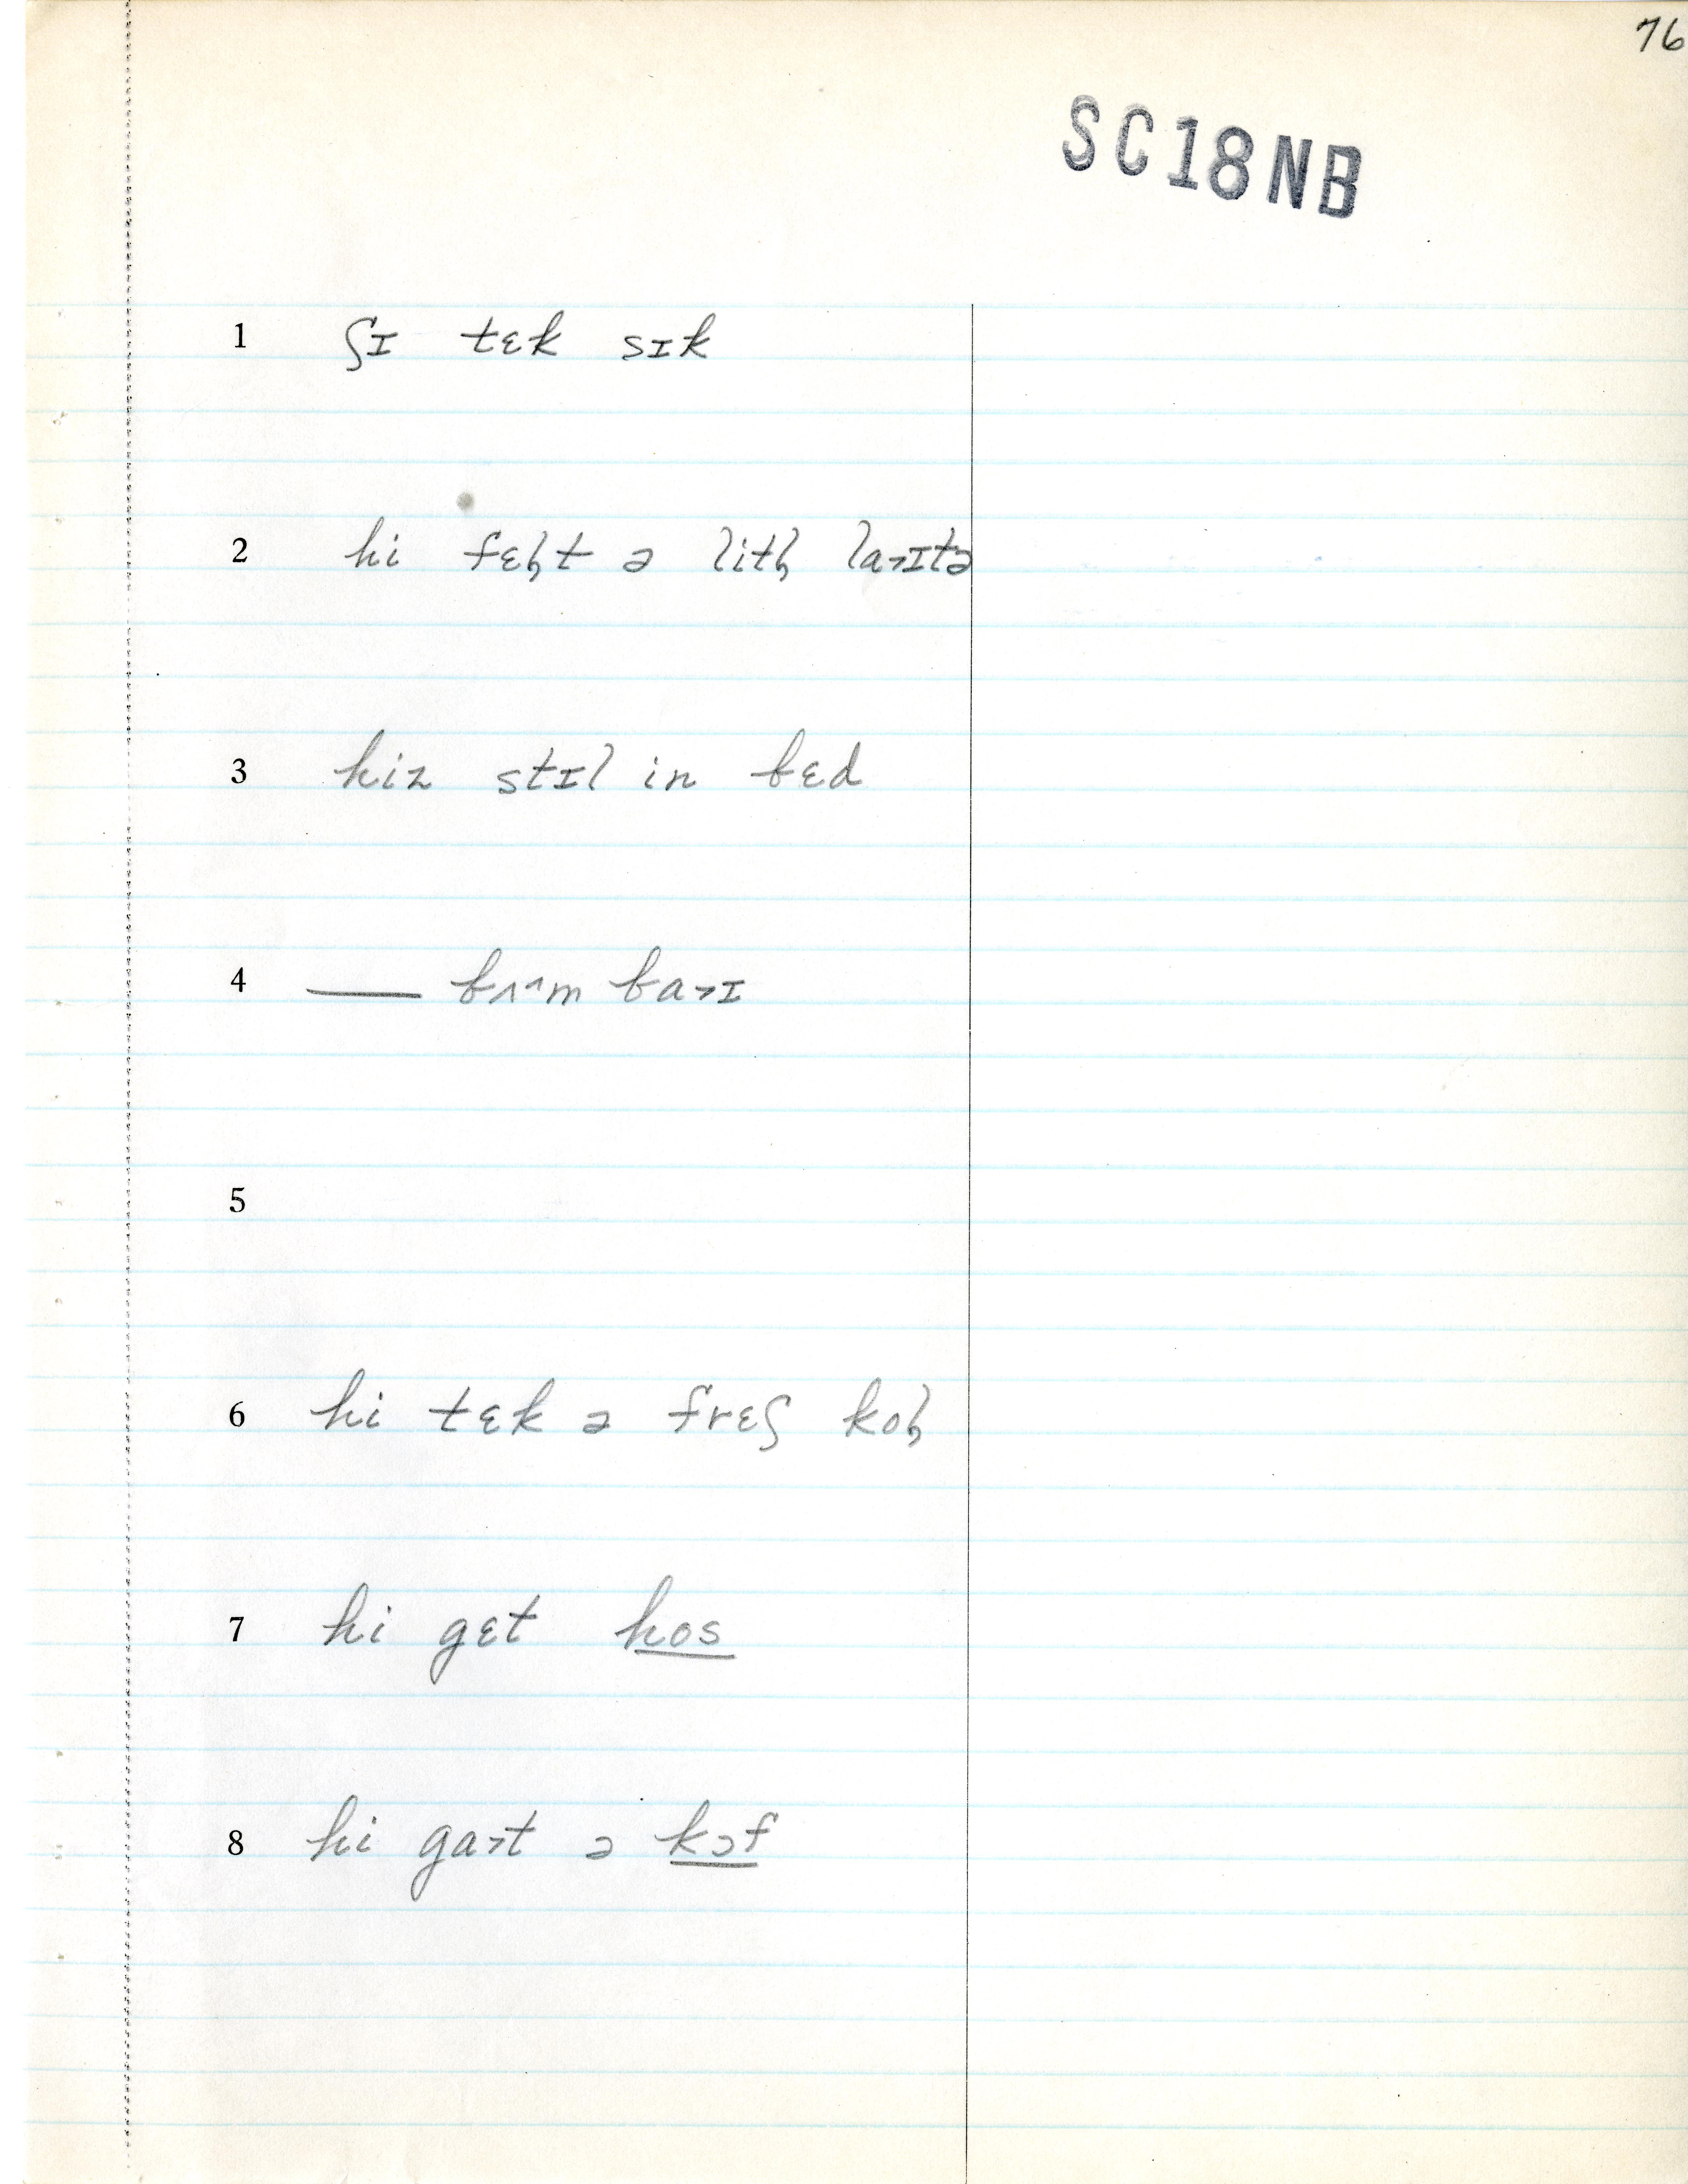 76
SC18NB
1 ʃɪ tɛk sɪk
2 hi fɛɫt ə litɫ la˃ɪtə
3 hiz stɪl in bɛd
4 —— bʌ˄m ba˃ɪ
5
6 hi tɛk ə frɛʃ koɫ
7 hi gɛt hos
8 hi ga˃t ə kɔf